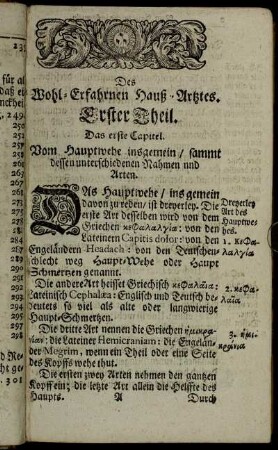 Des
Wohl-Erfahrnen Hauß-Artztes.
Erster Theil.
Das erste Capitel.
Vom Hauptwehe insgemein / sammt
dessen unterschiedenen Nahmen und
Arten.
DAs Hauptwehe / ins gemein
davon zu reden / ist dreyerley. Die
erste Art desselben wird von dem
Griechen κεφαλαλγία: von den
Lateinern Capitis dolor: von den
Engeländern Headach: von den Teutschen
schlecht weg Haupt-Wehe oder Haupt
Schmertzen genannt.
Die andere Art heisset Griechisch κεφαλαῖα:
Lateinisch Cephalæa: Englisch und Teutsch be-
deutets so viel als alte oder langwierige
Haupt-Schmertzen.
Die dritte Art nennen die Griechen ἡμικρα-
νίαν: die Lateiner Hemicraniam: die Engelän-
der Megrim, wenn ein Theil oder eine Seite
des Kopffs wehe thut.
Die ersten zwey Arten nehmen den gantzen
Kopff ein; die letzte Art allein die Helffte des
Haupts. A Durch
Dreyerley
Art des
Hauptwe-
hes.
1. κεφα-
λαλγία
2. κεφα-
λαῖα
3. ἡμι-
κρανία
für al
249
250
253
255
257
259
260
262
265
267
268
271
275
277
278
283
284
288
294
297
298
301